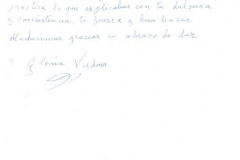 practica lo que explicabas con tu dulzura
y consistencia, tu fuerza y bien hacer
Muchísimas gracias un abrazo de luz
Gloria Viedma